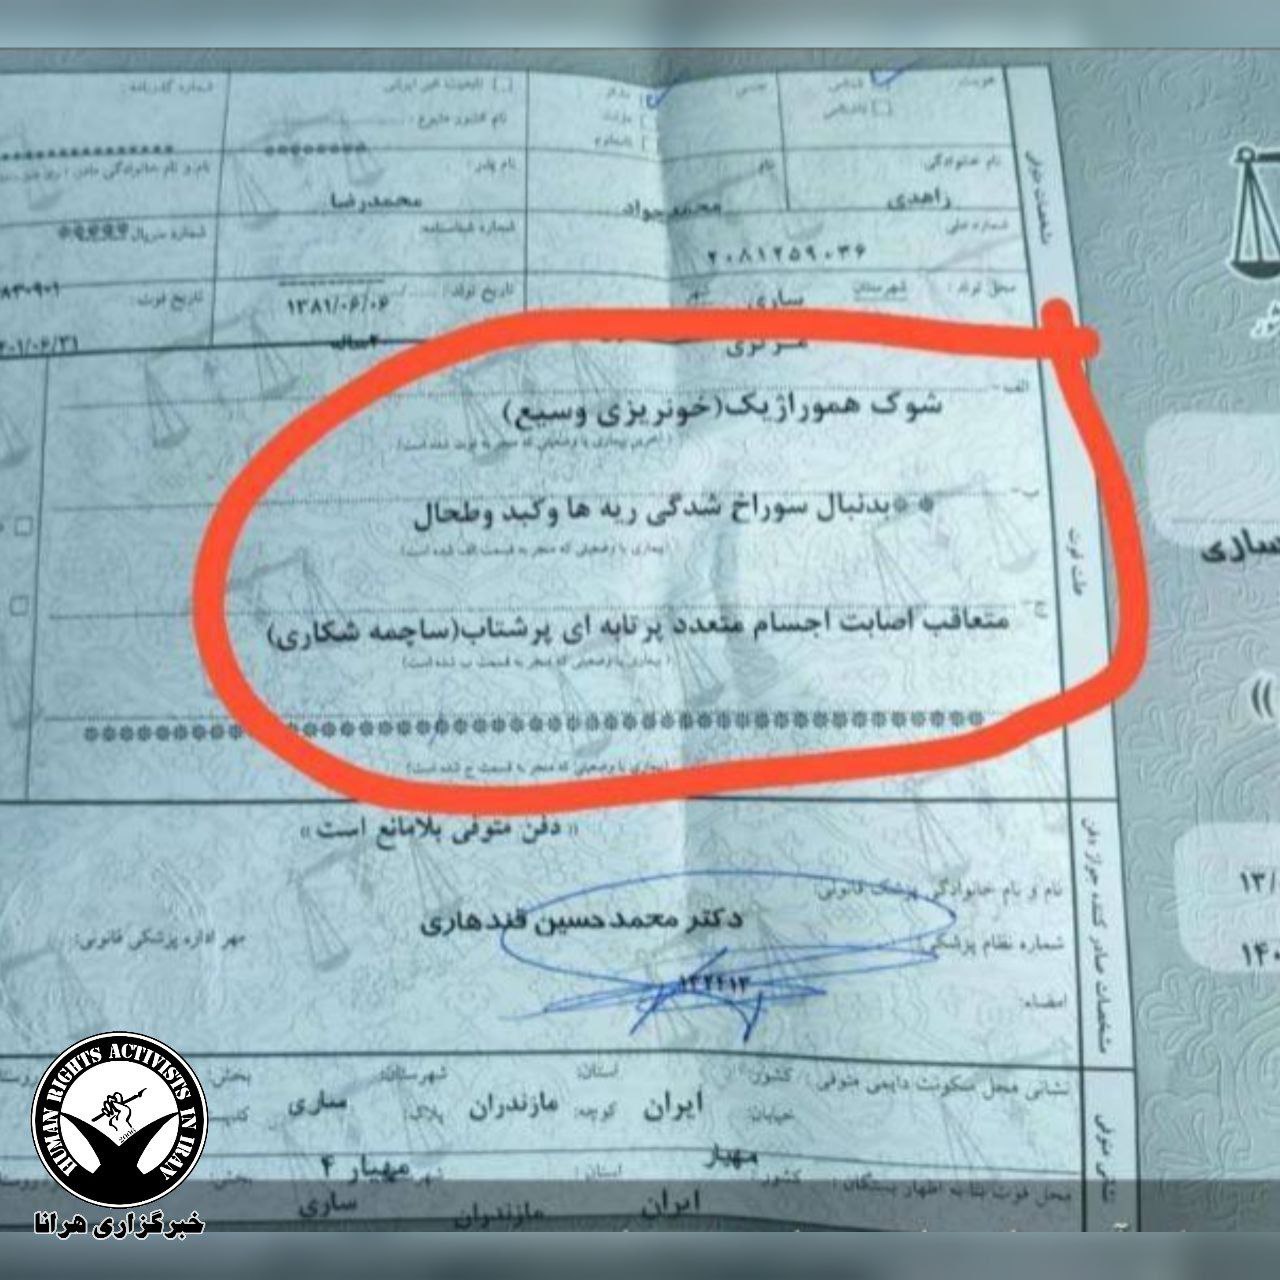 هویت: شناس
جنس: مذکر
تابعیت غیر ایرانی
شماره گذرنامه:
ناشناس
مونث
نام کشور متبوع:
نامعلوم
مشخصات متوفی
نام خانوادگی:
نام:
نام پدر:
زاهدی
محمدجواد
محمدرضا
شماره ملی:
شماره شناسنامه:
شماره سریال
۲۰۸۱۲۵۹۰۳۶
محل تولد: شهرستان
ساری
شهر
تاریخ تولد:
۱۳۸۱/۰۶/۰۶
تاریخ فوت:
مرکزی
الف-
شوک هموراژیک(خونریزی وسیع)
(آخرین بیماری یا وضعیتی که منجر به فوت شده است)
ب-
**بدنبال سوراخ شدگی ریه ها وکبد وطحال
(بیماری یا وضعیتی که منجر به قسمت الف شده است)
علت فوت
ج-
متعاقب اصابت اجسام متعدد پرتابه ای پرشتاب(ساچمه شکاری)
(بیماری یا وضعیتی که منجر به قسمت ب شده است)
(بیماری یا وضعیتی که منجر به قسمت ج شده است)
« دفن متوفی بلامانع است »
مشخصات صادر کننده جواز دفن
نام و نام خانوادگی پزشک قانونی:
دکتر محمدحسین قندهاری
شماره نظام پزشکی:
مهر اداره پزشکی قانونی:
۱۳۲۴۱۳
امضاء:
نشانی محل سکونت دایمی متوفی: کشور: استان: شهرستان: بخش:
ایران مازندران ساری
خیابان: کوچه: پلاک:
مهیار
مهیار ۴
محل فوت بنا به اظهار بستگان: کشور: استان: شهر بخش:
ایران مازندران ساری
ساری
HUMAN RIGHTS ACTIVISTS IN IRAN
2006
خبرگزاری هرانا